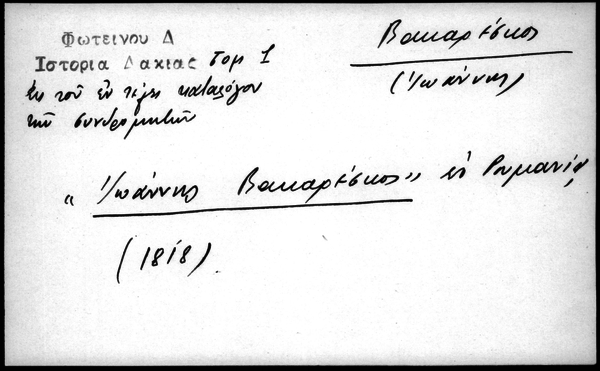 Φωτεινου Δ
Ιστορια Δακιας Τομ 1
Ἐκ τοῦ ἐν τέλει καταλόγου
τῶν συνδρομητῶν
Βακαρέσκος
(Ἰωάννης)
"Ἰωάννης Βακαρέσκος" ἐν Ρουμανίᾳ
(1818)